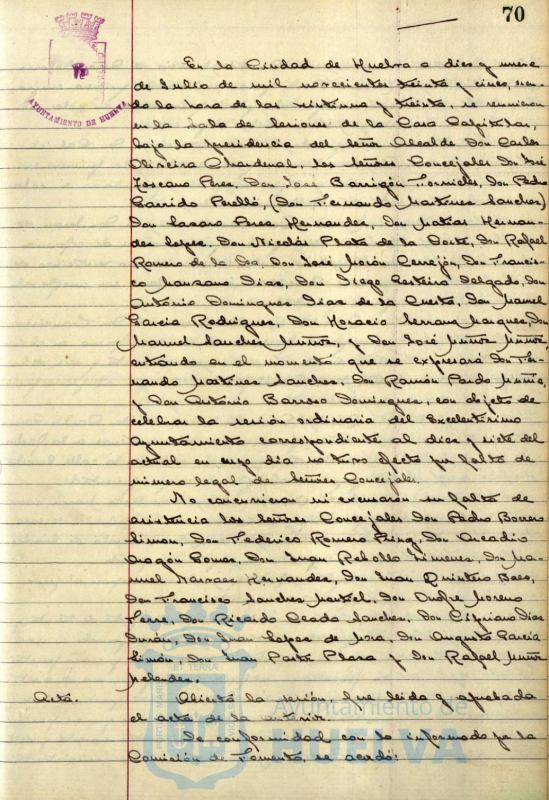 70
AYUNTAMIENTO DE HUELVA
En la Ciudad de Huelva a diez y nueve
de Julio de mil novecientos treinta y cinco, sien-
do la hora de las veintiuna y treinta, se reunieron
en la Sala de Sesiones de la Casa Capitular,
bajo la presidencia del Señor Alcalde Don Carlos
Oliveira Chardenal, los señores Concejales Don José
Toscano Perez, Don José Barrigón Fornieles, Don Pedro
Garrido Perelló, (Don Fernando Martinez Sanchez)
Don Lazaro Perez Hernandez, Don Matías Hernan-
dez Lopez, Don Nicolás Prata de la Corte, Don Rafael
Romero de la Osa, Don José Morón Cerrejón, Don Francis-
co Manzano Diaz, Don Diego Delgado, Don
Antonio Dominguez Diaz de la Cuesta, Don Manuel
Garcia Rodriguez, Don Horacio Serrano Marquez, Don
Manuel Sanchez Muñoz, y Don José Muñoz Muñoz,
entrando en el momento que se expresará Don Fer-
nando Martinez Sanchez, Don Ramón Pardo Muñiz,
y Don Antonio Barroso Dominguez, con objeto de
celebrar la sesión ordinaria del Excelentísimo
Ayuntamiento correspondiente al diez y siete del
actual en cuyo dia no tuvo efecto por falta de
número legal de Señores Concejales.
No concurrieron ni excusaron su falta de
asistencia los Señores Concejales Don Pedro Borrero
Limon, Don Federico Romero Don Arcadio
Aragón Gomez, Don Juan Rebollo Jimenez, Don Ma-
nuel Narvaez Hernandez, Don Juan Quintero Baez,
Don Francisco Sanchez Don Onofre Moreno
Don Ricardo Sanchez, Don Cipriano Diaz
Durán, Don Juan Lopez de Mora, Don Augusto Garcia
Limón, Don Juan Pastor Plaza y Don Rafael Muñoz
Melendez.
Acta. Abierta la sesión, fue leida y aprobada
el acta de la anterior.
De conformidad con lo informado por la
Comisión de Fomento, se acordó:
Ayuntamiento de
HUELVA